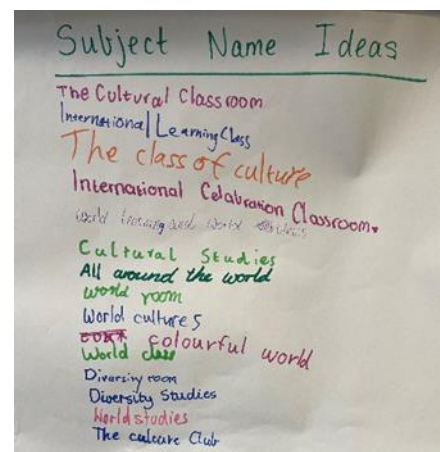 Subject Name Ideas
The Cultural Classroom
International Learning Class
The class of culture
International Celabration Classroom.
world learning and world studies
Cultural Studies
All around the world
world room
World cultures
colourful world
World class
Diversity room
Diversity Studies
World studies
The culture Club